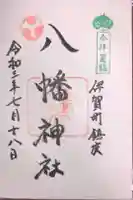 伊賀町鎮座
八幡神社
令和三年七月十八日